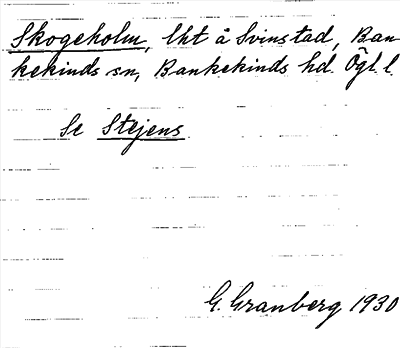 Skogeholm, lht å Svinstad, Ban
kekinds sn, Bankekinds hd. Ögl. l.
Se Stejens
G. Granberg 1930